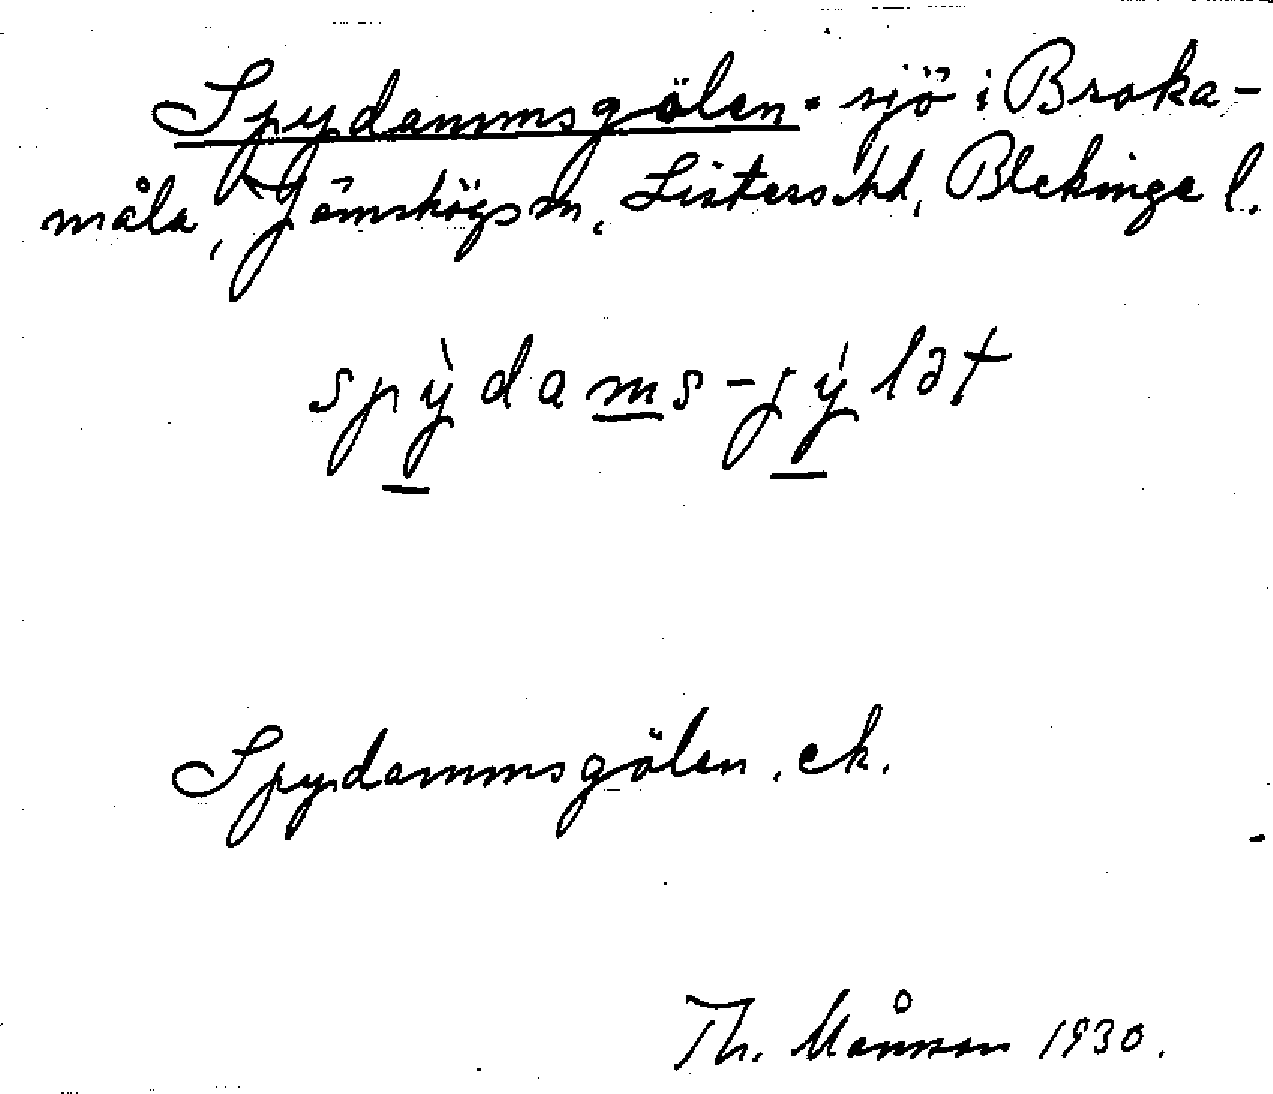 Spydammsgölen. sjö i Broka-
måla, Jämshögs sn, Listers hd, Blekinge l.
spỳdams-jýlət
Spydammsgölen, ek.
Th. Månsson 1930.